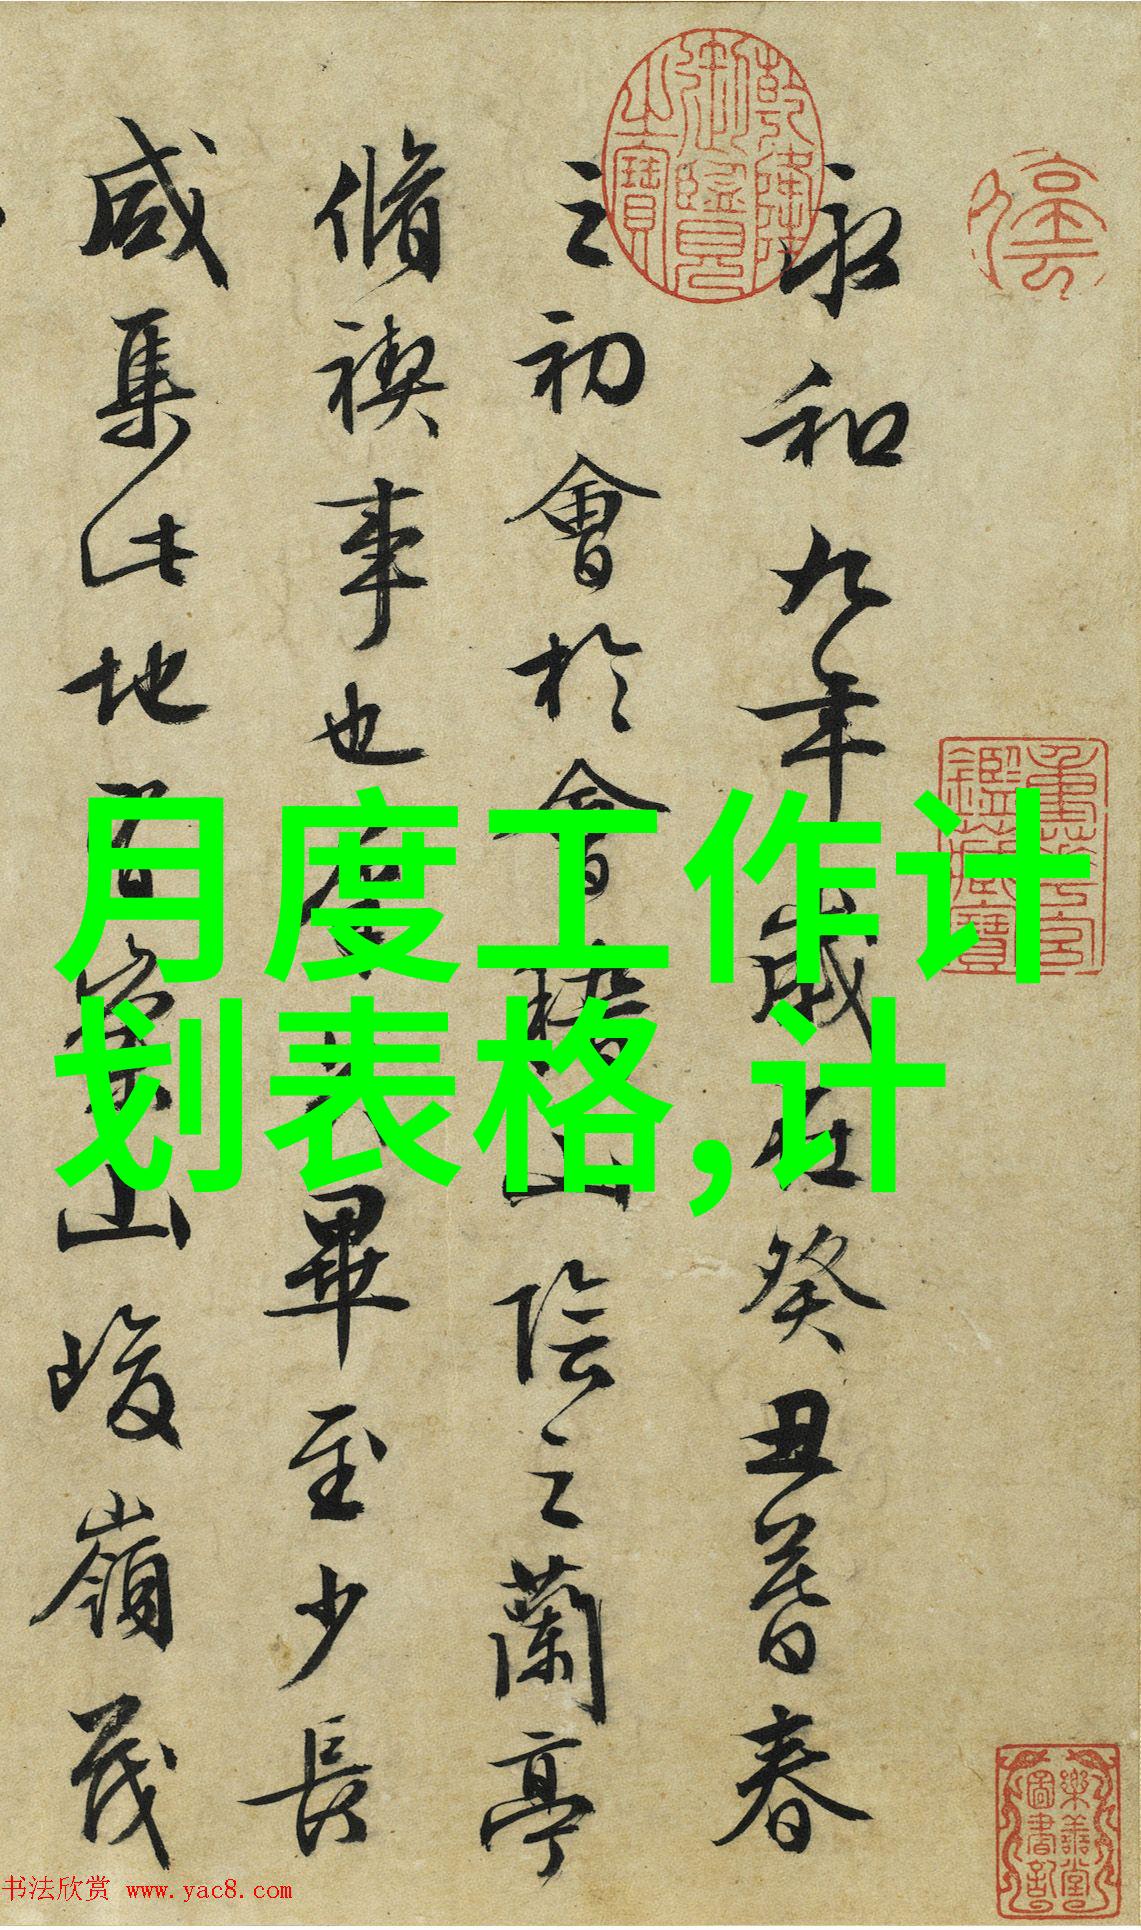 永和九年歲在癸丑暮春
之初會於會稽山陰之蘭亭
脩禊事也羣賢畢至少長
咸集此地有崇山峻嶺茂
月度工作计
划表格,计
乾隆御鑑之寶
樂善堂圖書記
书法欣赏 www.yac8.com